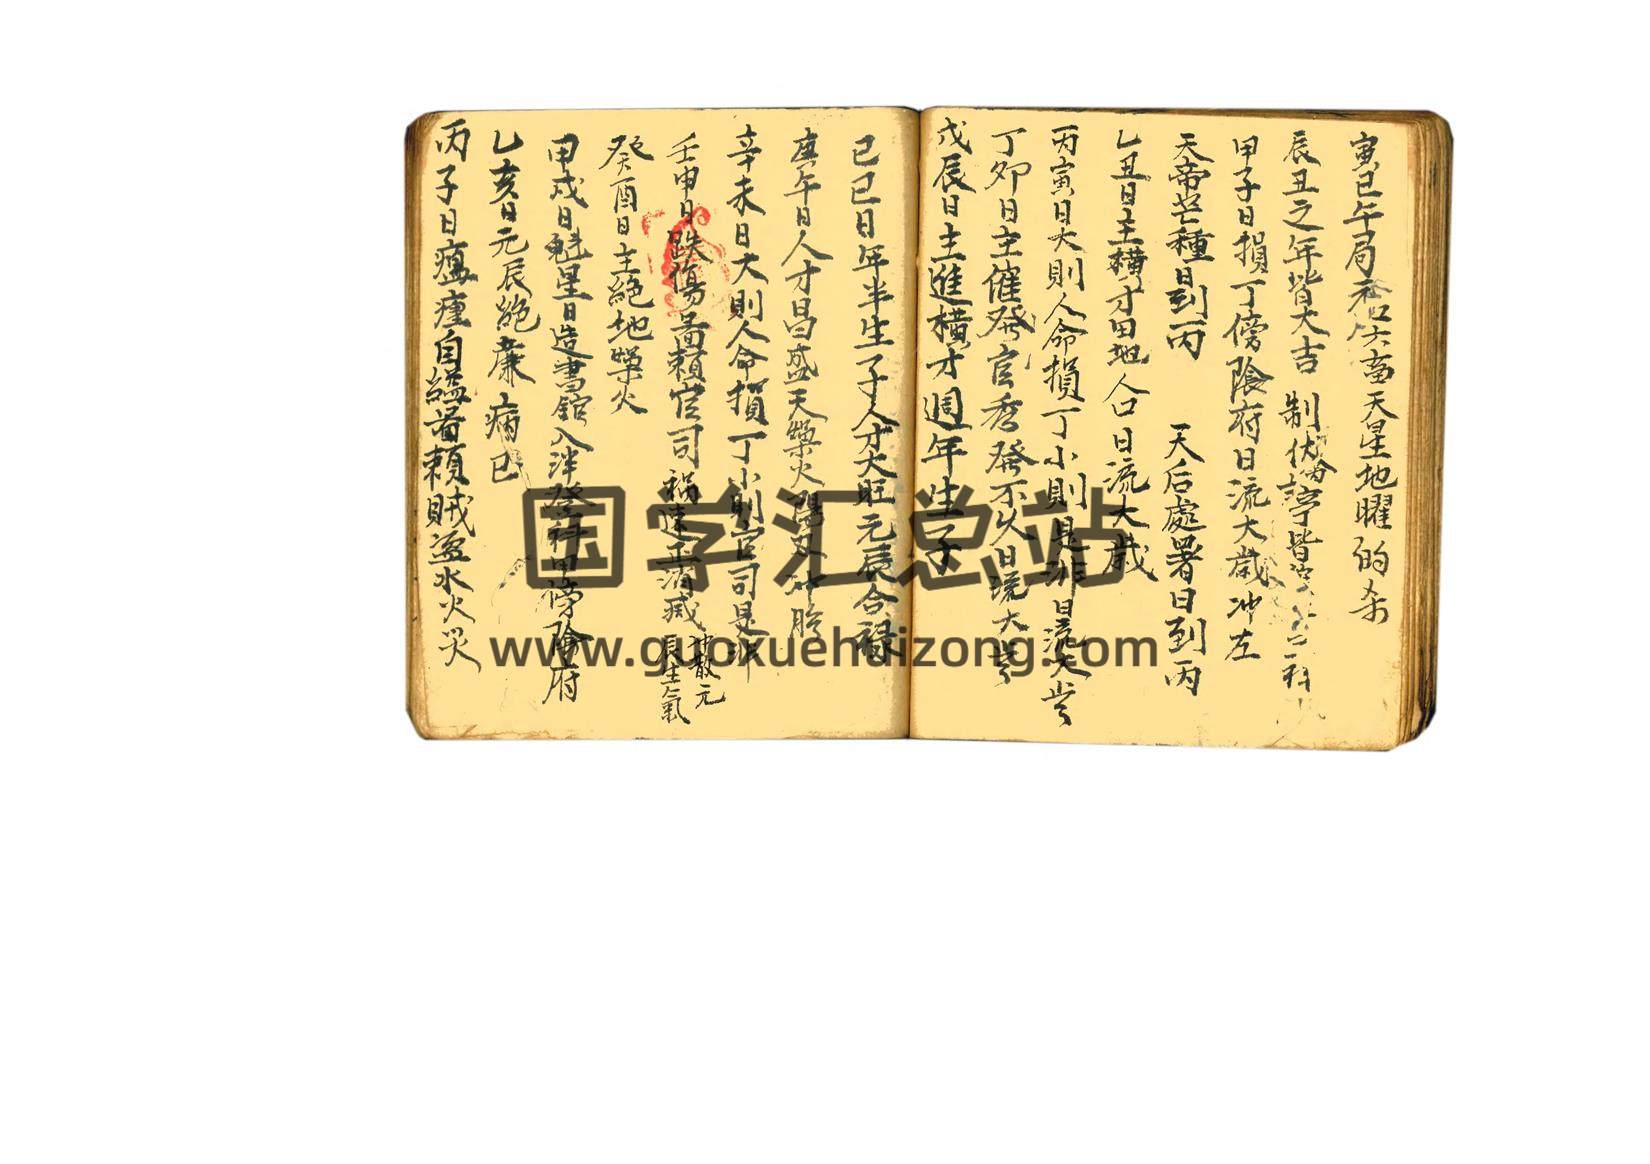 寅巳午局 六畜天星地曜的杀
辰丑之年皆大吉 制伏 皆 科
甲子日損丁傍陰府日流太歲冲左
天帝芒種日到丙 天后處署日到丙
乙丑日主橫才田地 合日流大歲
丙寅日大則人命損丁小則是非日流大岁
丁卯日主催發官秀發不久日流大岁
戊辰日主進橫才週年生子
己巳日年半生了子人才大旺元辰合禄
庚午日人才昌盛天 火陽刃
辛未日大則人命損丁小則官司是非
壬申日跌傷 賴官司 禍 消减 冲散元
辰生氣
癸酉日主絕地 火
甲戌日魁星日造書館入泮發科甲傍陰府
乙亥日元辰絕 病
丙子日瘟 自縊 賴賊盗水火災
国学汇总站
www.guoxuehuizong.com